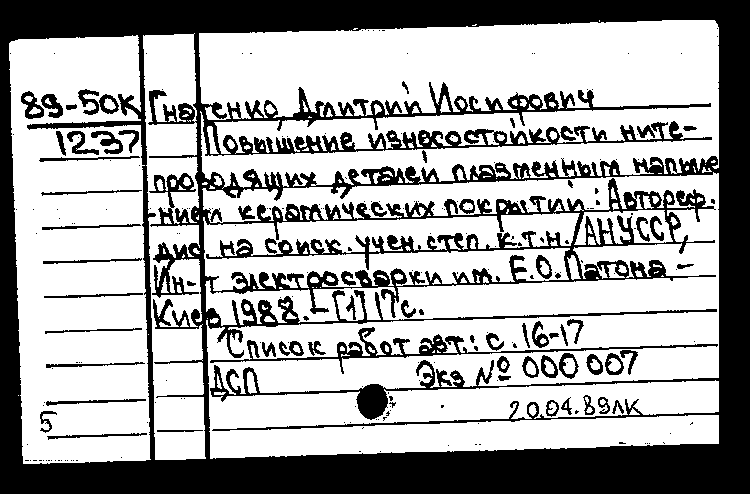 89-50К Гнатенко, Дмитрий Иосифович
1237 Повышение износостойкости ните-
проводящих деталей плазменным напыле
-нием керамических покрытий : Автореф.
дис. на соиск. учен. степ. к.т.н./АНУССР,
Ин-т электросварки им. Е.О.Патона.-
Киев 1988.-[1]17с.
Список работ авт.: с.16-17
ДСП Экз № 000 007
20.04.89лк
5